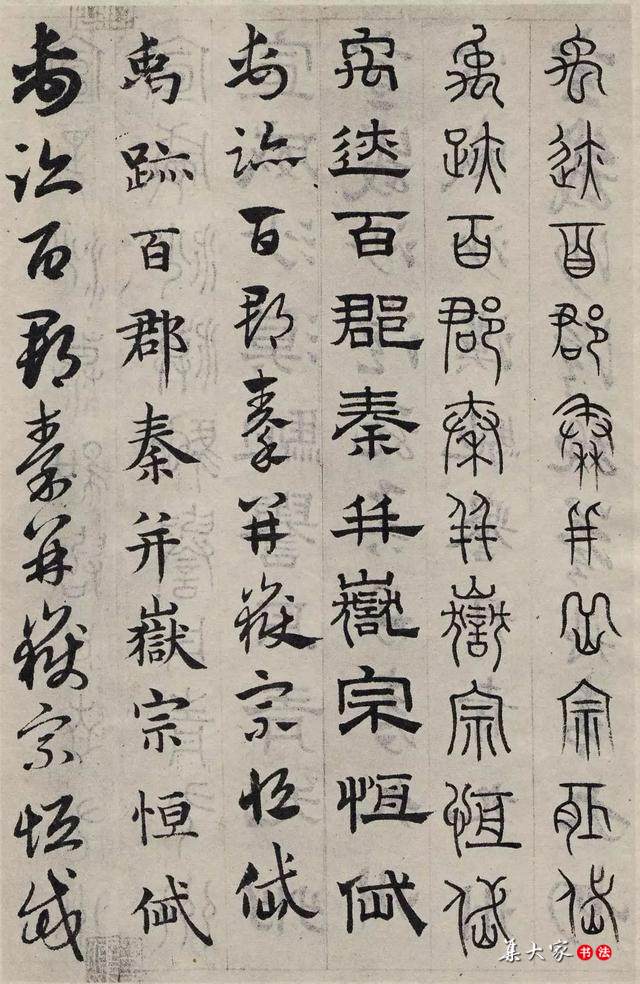 禹跡百郡秦并嶽宗恒岱
禹跡百郡秦并嶽宗恒岱
禹跡百郡秦并嶽宗恒岱
禹跡百郡秦并嶽宗恒岱
禹跡百郡秦并嶽宗恒岱
禹跡百郡秦并嶽宗恒岱
集大家书法